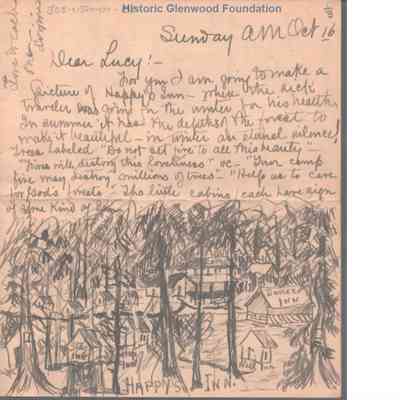 Historic Glenwood Foundation
Sunday AM Oct 16
Dear Lucy!-
For you I am going to make a
picture of Happy's Inn - where the sick
traveler was going in the winter for his health
In summer it has the depths of the forest to
make it beautiful - in winter an eternal silence!
Trees labeled "Do not set fire to all this beauty" -
"Fires will destroy this loveliness" &c - "Your camp
fire may destroy millions of trees" - "Help us to care
for God's forests" The little cabins each have sign
of some kind of
HAPPY'S INN.
INN